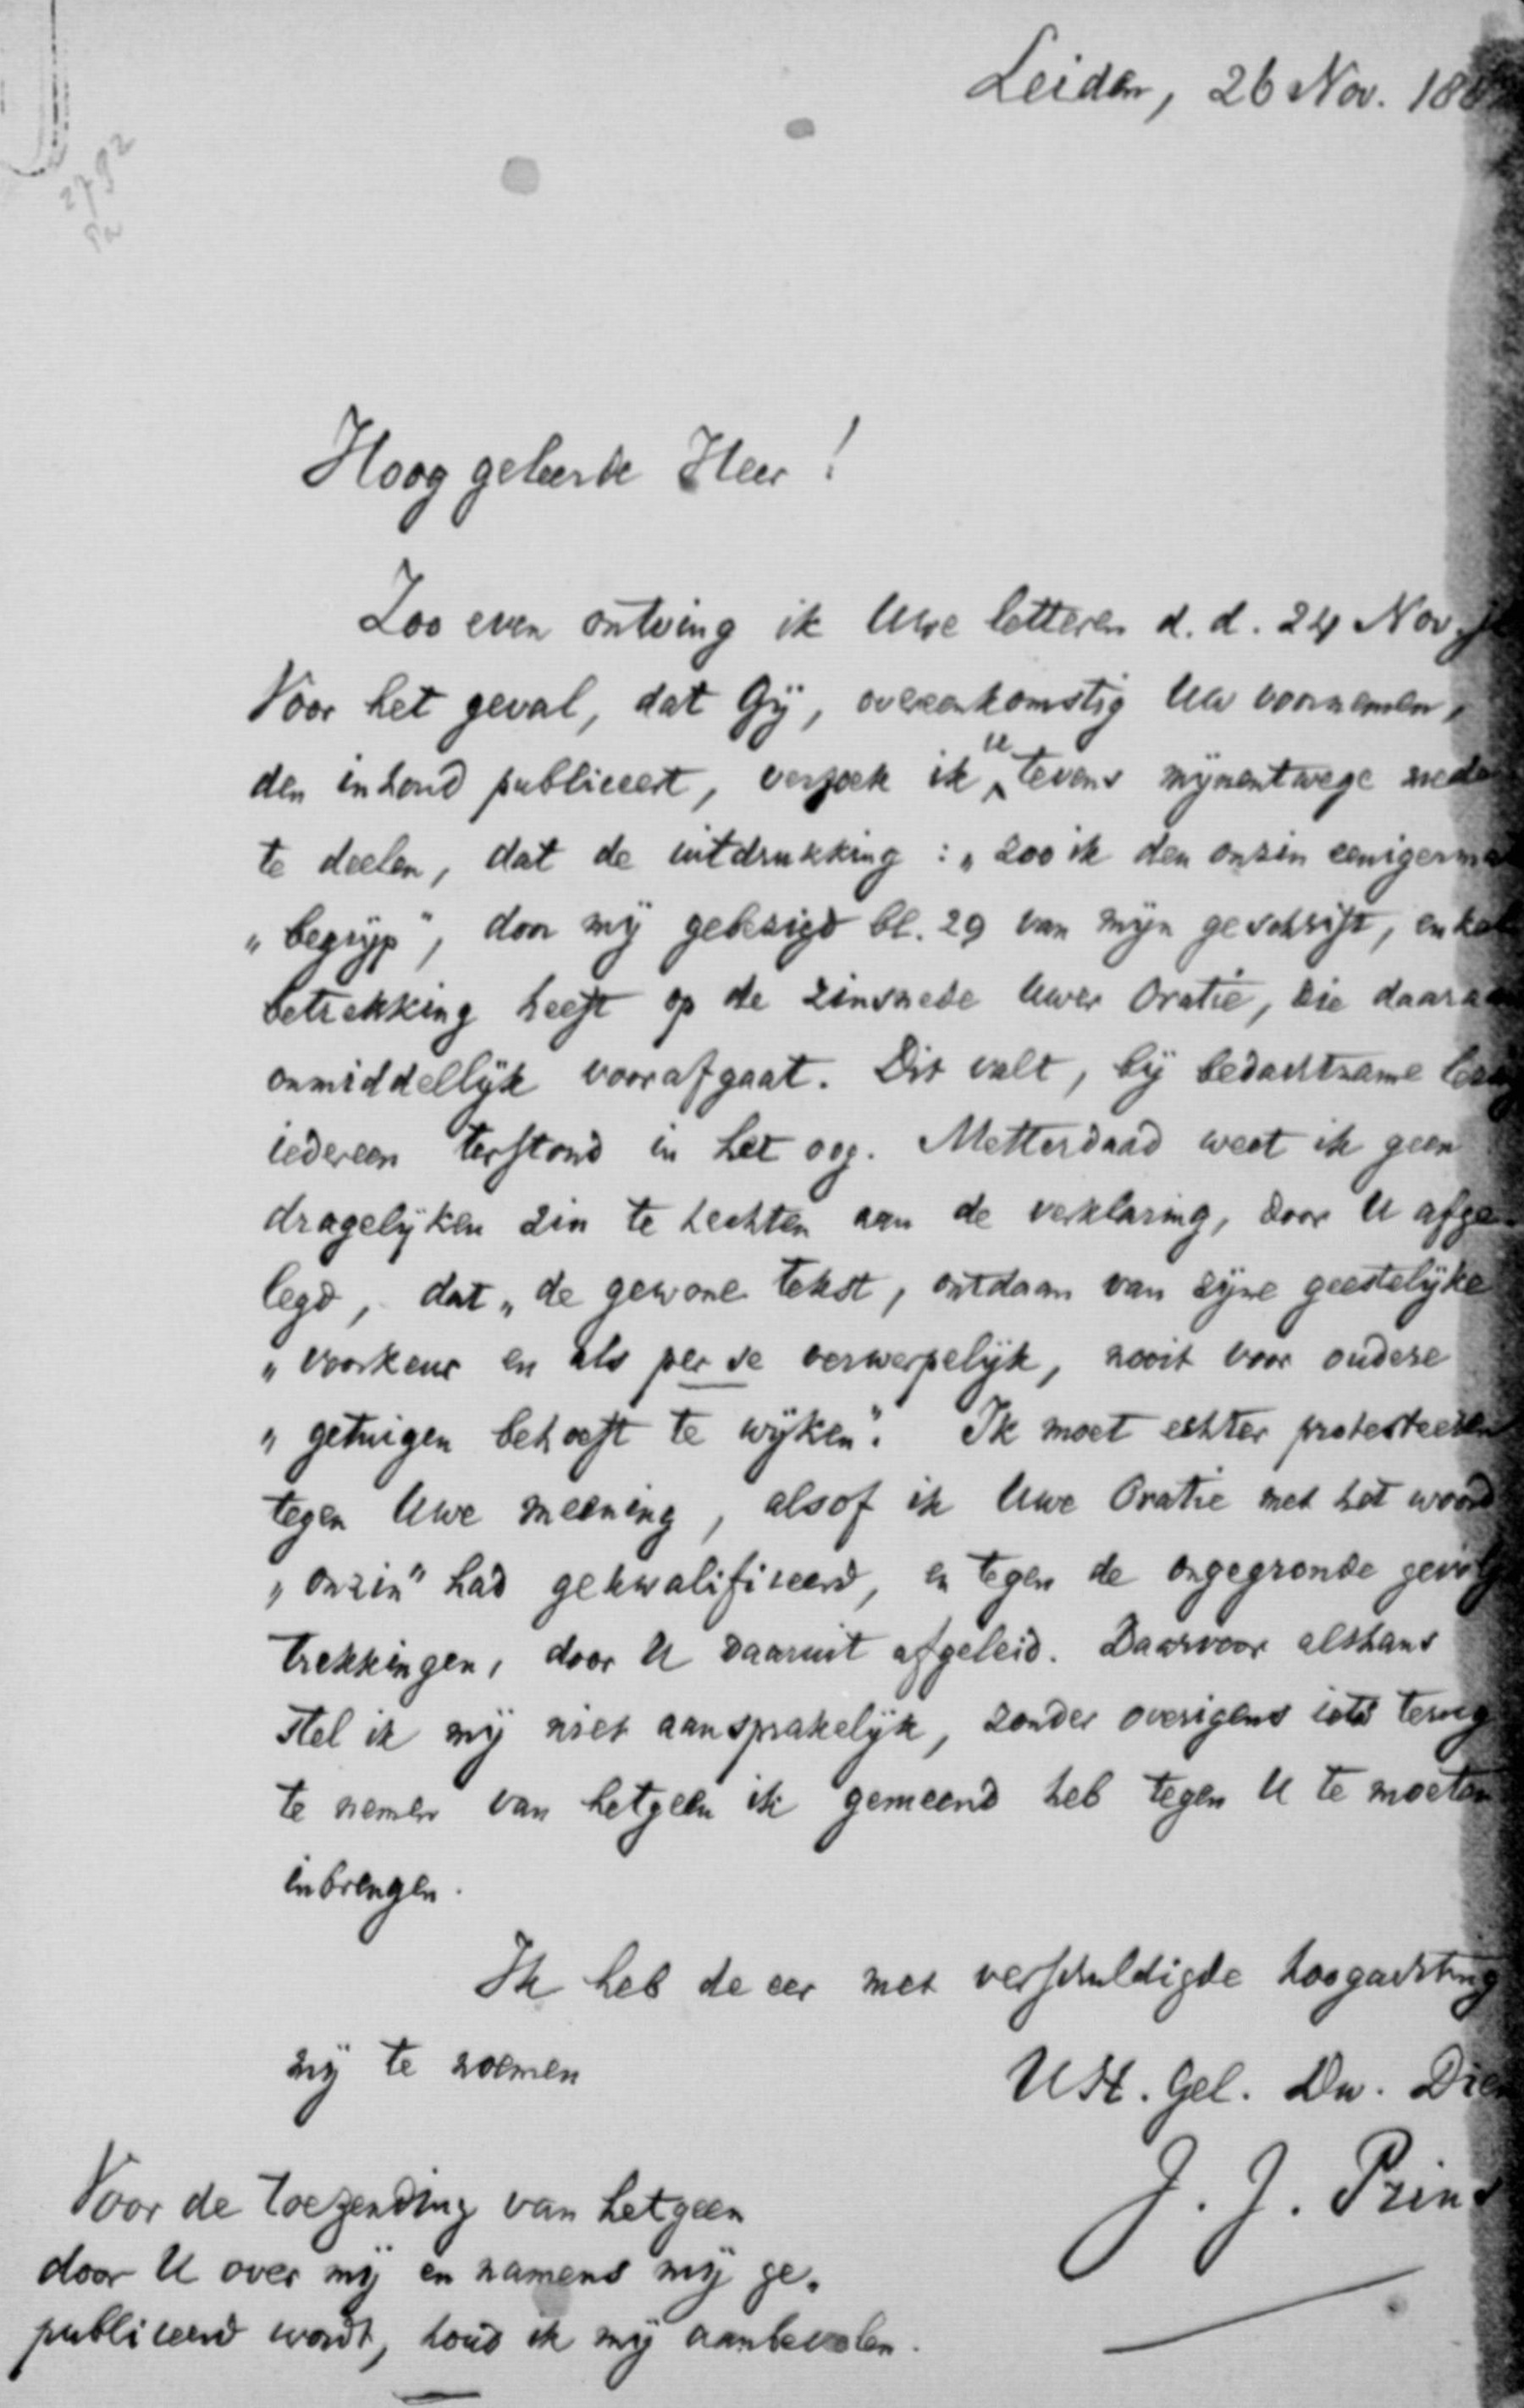 Leiden, 26 Nov. 188
2792
Hoog geleerde Heer!
Zoo even ontving ik Uwe letteren d. d. 24 Nov. jl
Voor het geval, dat Gij, overeenkomstig Uw voornemen,
den inhoud publiceert, verzoek ik U tevens mijnentwege mede
te deelen, dat de uitdrukking: „zoo ik den onzin eenigerma
„begrijp", door mij gebezigd bl. 29 van mijn geschrift, enkel
betrekking heeft op de zinsnede Uwer Oratie, die daaraan
onmiddellijk voorafgaat. Dit valt, bij bedachtzame lezing
iedereen terstond in het oog. Metterdaad weet ik geen
dragelijken zin te hechten aan de verklaring, door U afge-
legd, dat „de gewone tekst, ontdaan van zijne geestelijke
„voorkeur en als per se verwerpelijk, nooit voor oudere
„getuigen behoeft te wijken". Ik moet echter protesteeren
tegen Uwe meening, alsof ik Uwe Oratie met het woord
„onzin" had gekwalificeerd, en tegen de ongegronde gevolg
trekkingen, door U daaruit afgeleid. Daarvoor althans
stel ik mij niet aansprakelijk, zonder overigens iets terug
te nemen van hetgeen ik gemeend heb tegen U te moeten
inbrengen.
Ik heb de eer met verschuldigde hoogachting
mij te noemen
UH. Gel. Dw. Dien
J. J. Prins
Voor de toezending van hetgeen
door U over mij en namens mij ge-
publiceerd wordt, houd ik mij aanbevolen.